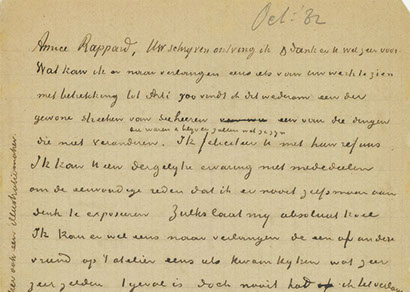 Oct: 82
Amice Rappard, Uw schrijven ontving ik & dank er U wel zeer voor.
Wat kan ik er naar verlangen eens iets van uw werk te zien
met betrekking tot Arti zoo vind ik dit wederom een der
gewone streeken van die heeren een van die dingen
die waren & blijven zullen wat ze zijn
die niet veranderen. Ik feliciteer U met hun refus
Ik kan U een dergelijke ervaring niet mededeelen
om de eenvoudige reden dat ik er nooit zelfs maar aan
denk te exposeren Zulks laat my absoluut koel
Ik kan er wel eens naar verlangen de een of andere
vriend op 't atelier eens iets kwam kyken wat zeer
zeer zelden 't geval is doch nooit had of ik het verlangen
ook een illustratiemaker.